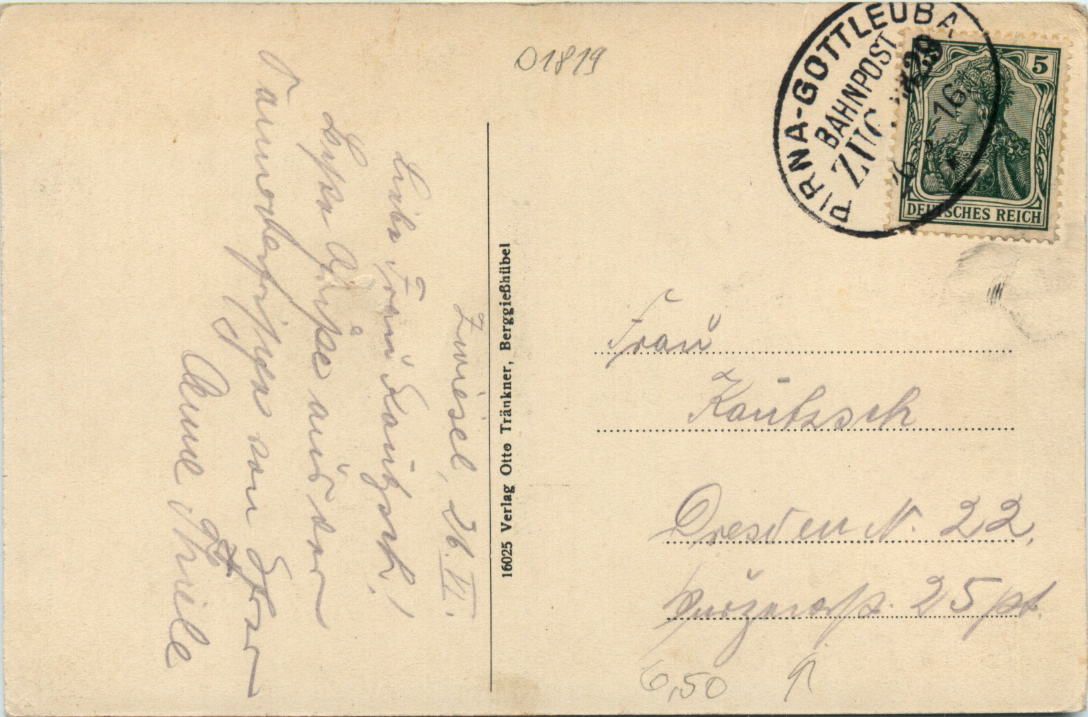 01819
PIRNA-GOTTLEUBA
BAHNPOST
ZUG
26 16
5
DEUTSCHES REICH
Zwiesel, 26. VI.
Liebe Frau Kautzsch!
Beste Grüße aus der
Sommerfrische von Ihrer
Anne Thiele
16025 Verlag Otto Tränkner, Berggießhübel
Frau
Kautzsch
Dresden N. 22,
25 pt.
6,50